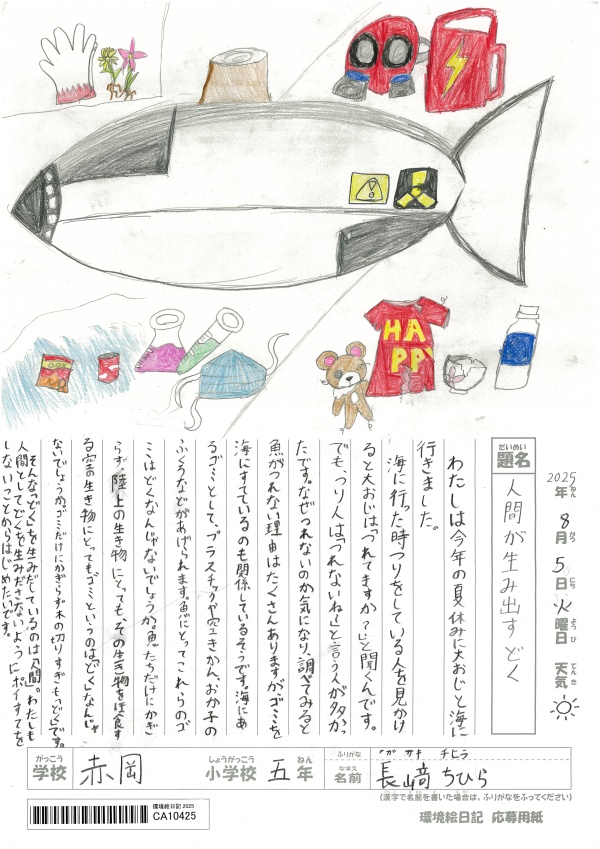 HA
PPY
2025年 8月 5日 火曜日 天気
ねん がつ にち ようび てんき
だいめい
題名
人間が生み出すどく
わたしは今年の夏休みに大おじと海に
行きました。
海に行った時つりをしている人を見かけ
ると大おじは「つれてますか?」と聞くんです。
でも、つり人は「つれないねー」と言う人が多かっ
たです。なぜつれないのか気になり、調べてみると
魚がつれない理由はたくさんありますが、ゴミを
海にすてているのも関係しているそうです。海にあ
るゴミとして、プラスチックや空きかん、おか子の
ふくろなどがあげられます。魚にとってこれらのゴ
ミはどくなんじゃないでしょうか。魚たちだけにかぎ
らず、陸上の生き物にとっても、その生き物をほ食す
る空の生き物にとってもゴミというのは「どく」なんじゃ
ないでしょうか。ゴミだけにかぎらず木の切りすぎも「どく」です。
そんな「どく」を生みだしているのは「人間」。わたしも
人間としてどくを生みださないようにポイすてを
しないことからはじめたいです。
がっこう
学校
赤岡
しょうがっこう
小学校
五
ねん
年
ふりがな
ナガサキ チヒラ
なまえ
名前
長﨑ちひら
(漢字で名前を書いた場合は、ふりがなをふってください)
環境絵日記 2025
CA10425
環境絵日記 応募用紙